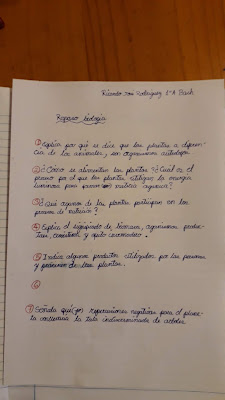 Ricardo José Rodríguez 1ºA Bach
Repaso biología
① Explica por qué se dice que las plantas a diferen-
cia de los animales, son organismos autótrofos.
② ¿Cómo se alimentan las plantas? ¿Cuál es el
proceso por el que las plantas utilizan la energía
luminosa para materia orgánica?
③ ¿Qué órganos de las plantas participan en los
procesos de nutrición?
④ Explica el significado de biomasa, organismos produc-
tores,
⑤ Indica algunos productos utilizados por las personas
y de las plantas.
⑥
⑦ Señala qué repercusiones negativas para el plane-
ta conllevaría la tala indiscriminada de árboles